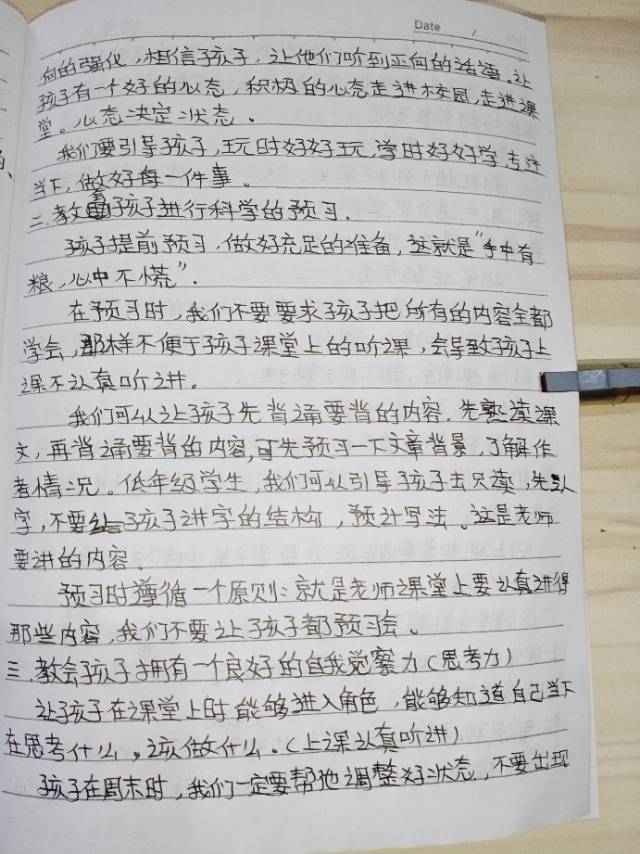 Date /
向的强化，相信孩子，让他们听到正向的话语，让
孩子有一个好的心态，积极的心态走进校园，走进课
堂。心态决定状态。
我们要引导孩子，玩时好好玩，学时好好学，专注
当下，做好每一件事。
二.教会孩子进行科学的预习.
孩子提前预习，做好充足的准备，这就是"手中有
粮，心中不慌".
在预习时，我们不要要求孩子把所有的内容全都
学会，那样不便于孩子课堂上的听课，会导致孩子上
课不认真听讲。
我们可以让孩子先背诵要背的内容.先熟读课
文，再背诵要背的内容，可先预习一下文章背景，了解作
者情况。低年级学生，我们可以引导孩子去只读，先认
字，不要给孩子讲字的结构，预计写法。这是老师
要讲的内容.
预习时遵循一个原则：就是老师课堂上要认真讲得
那些内容，我们不要让孩子都预习会。
三.教会孩子拥有一个良好的自我觉察力（思考力）
让孩子在课堂上时能够进入角色，能够知道自己当下
在思考什么，该做什么.（上课认真听讲）
孩子在周末时，我们一定要帮他调整好状态，不要出现